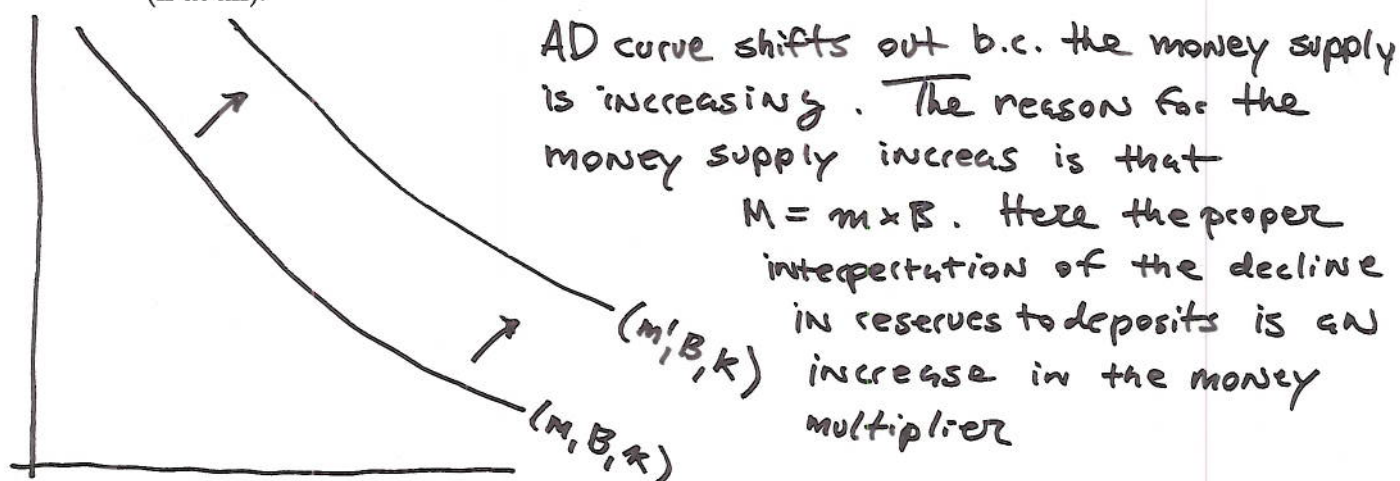 AD curve shifts out b.c. the money supply
is increasing. The reason for the
money supply increas is that
M = m x B. Here the proper
interpertation of the decline
in reserves to deposits is an
increase in the money
multiplier
(m', B, k)
(m, B, k)